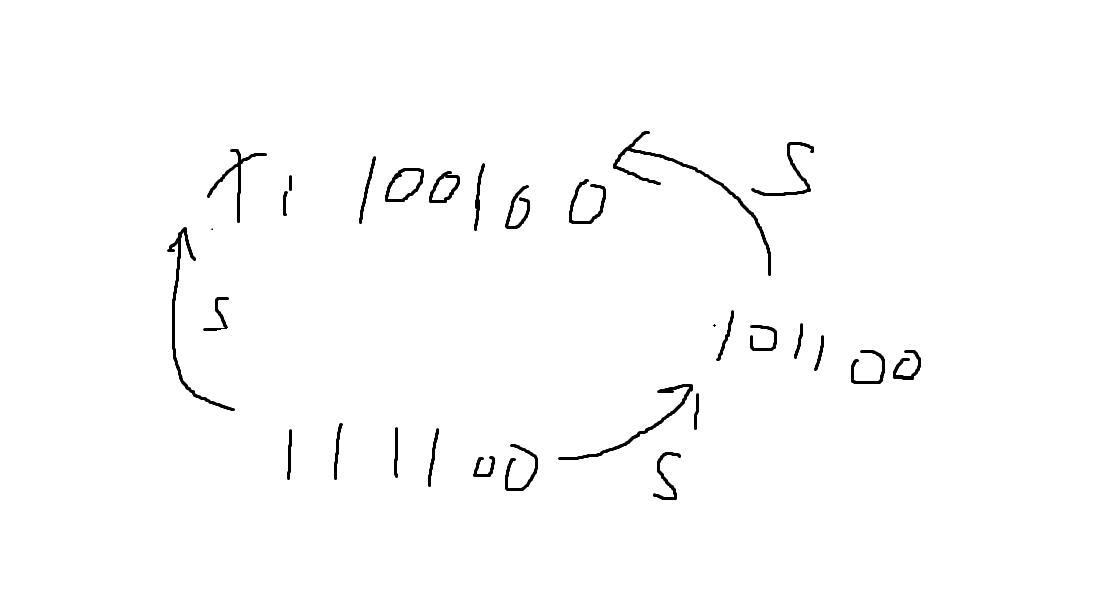 T1 100100
S
S
101100
111100
S